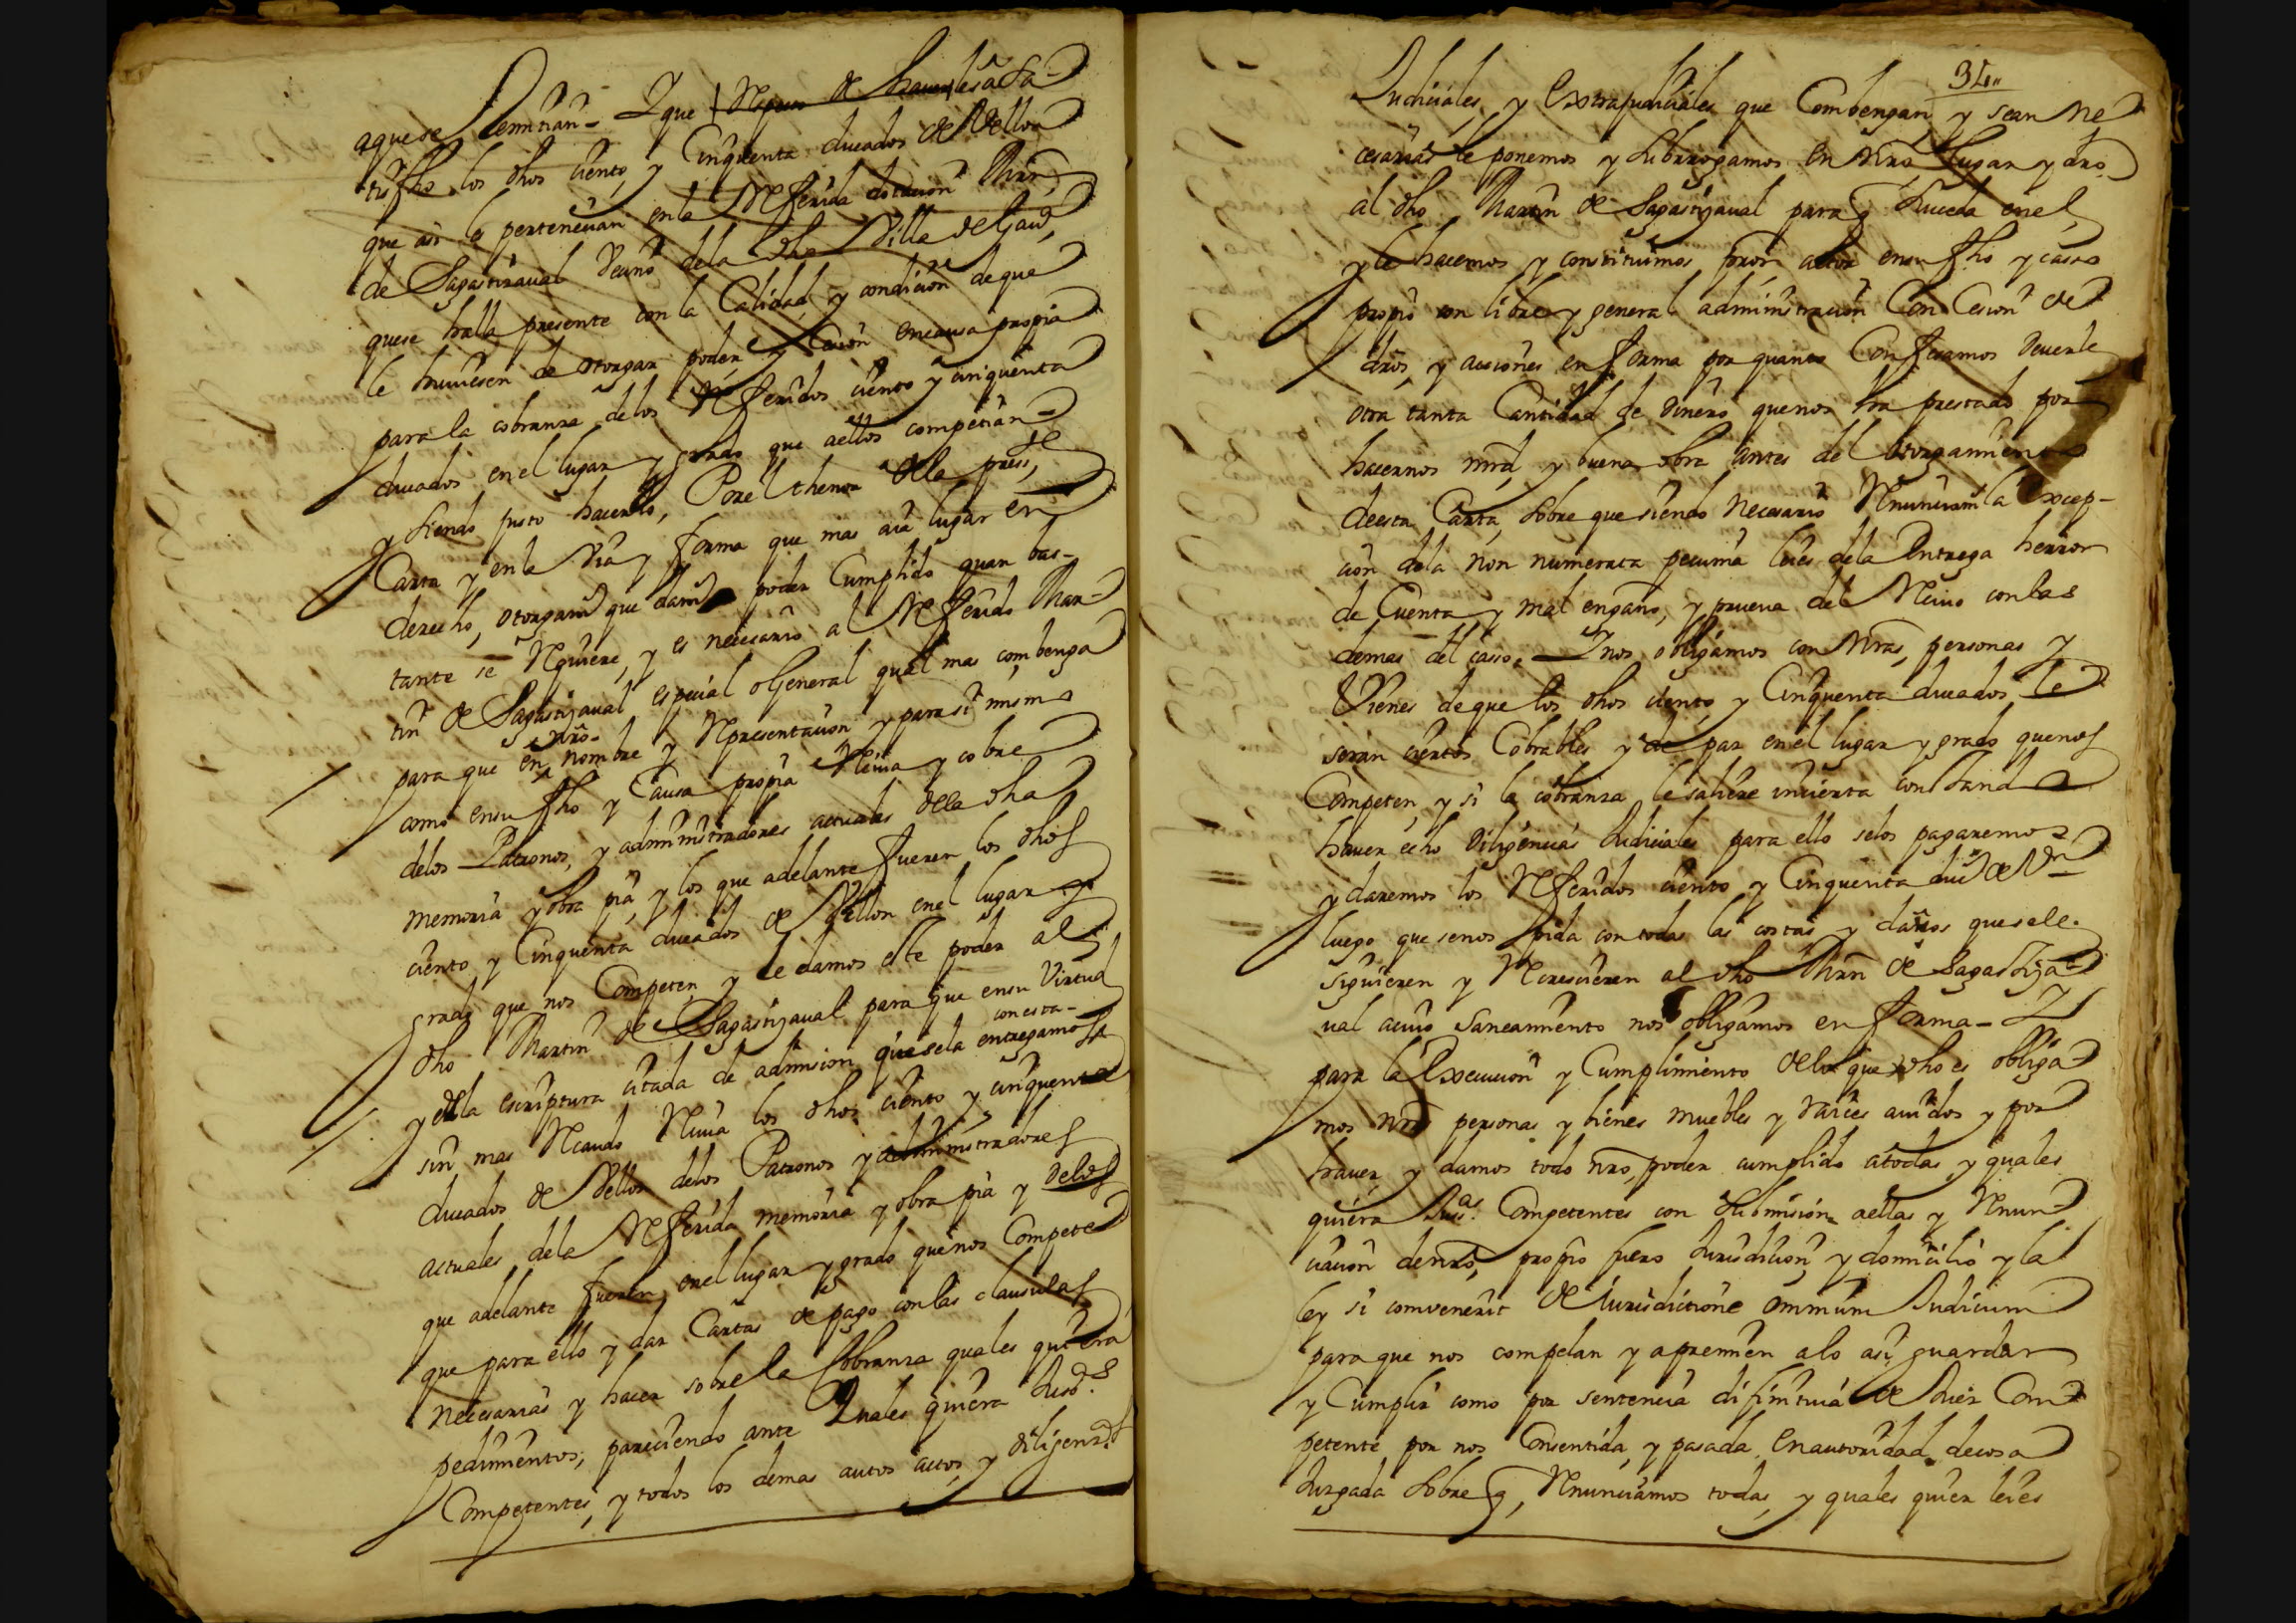 aquese Remitian - Y que Despues de haverles a Sa-
tisfho los dhos ciento y Cinquenta ducados de Vellon
que asi le pertenecian en la Referida dotacion Mrn
de Sagastizaval Vecino de la dha Villa de
quese halla presente con la Calidad, y condicion de que
le huviesen de otorgar poder y Cesion en causa propia
para la cobranza de los Referidos ciento y cinquenta
ducados en el lugar y grado que a ellos competian -
y siendo justo hacerlo, Por el thenor de la press.te
Carta y en la via y forma que mas aia lugar en
derecho, otorgaron que davan poder Cumplido quan bas-
tante se Requiere, y es necesario al Referido Mar-
tin de Sagastizaval especial o General qual mas combenga
para que en nro nombre y Representacion y para si mismo
como en su fho y Causa propia Reciva y cobre
delos Patronos, y administradores actuales de la dha
memoria y obra pia, y los que adelante fueren los dhos
ciento y Cinquenta ducados de Vellon en el lugar y
grado que nos Competen, y le damos este poder al
dho Martin de Sagastizaval para que en su Virtud
y de la escriptura citada de admision que se la entregamos con esta -
sin mas Recaudo Reciva los dhos ciento y cinquenta
ducados de Vellon delos Patronos y administradores
actuales de la Referida memoria y obra pia y delos
que adelante fueren, en el lugar y grado que nos Compete
que para ello y dar Cartas de pago con las clausulas
necesarias y hacer sobre la Cobranza quales quiera
pedimentos, pareciendo ante Quales quiera Jusd.s
Competentes, y todos los demas autos actos, y diligenz.s
34
Judiciales, y Extrajudiciales que Combengan y sean ne
cesarias le ponemos y Subrrogamos en nro, lugar y dro
al dho Martin de Sagastizaval para q Suceda en el
y le hacemos y constituimos procr actor en su fho y causa
propio con libre y general administracion Con Cesion de
dros, y acciones en forma por quanto Confesamos deverle
otra tanta Cantidad de dinero que nos ha prestado por
hacernos mrd, y buena obra antes del otorgamiento
de esta Carta, sobre que siendo Necesario Renunciam la Excep-
cion de la non numerata pecunia leies de la Entrega herror
de Cuenta y mal engaño, y prueva del Recivo con las
demas del caso. Y nos obligamos con nras, personas y
Vienes de que los dhos ciento y Cinquenta ducados le
seran ciertos Cobrables y de paz en el lugar y grado que nos
Competen, y si la cobranza le saliere incierta con Sando
haver echo diligencias Judiciales para ello se los pagaremos
y daremos los Referidos ciento y Cinquenta ducs de Vn
luego que se nos pida con todas las costas y daños que se le
siguieren y Recrescieren al dho Mrn de Sagastiza-
val a cuio Saneamiento nos obligamos en forma - Y
para la Execucion y Cumplimiento de lo que dho es obliga
mos nras personas y bienes muebles y raices avidos y por
haver y damos todo nro, poder cumplido a todas, y quales
quiera Juss.as Competentes con Submision a ellas y Renun
ciacion de nro, propio fuero Jurisdicion, y domicilio y la
ley si convenerit de Jurisdictione omnium Judicum
para que nos compelan y apremien a lo asi guardar
y Cumplir como por sentencia difinitiva de Juez Com
petente por nos Consentida, y pasada En autoridad de cosa
Juzgada sobre q, Renunciamos todas, y quales quier leies